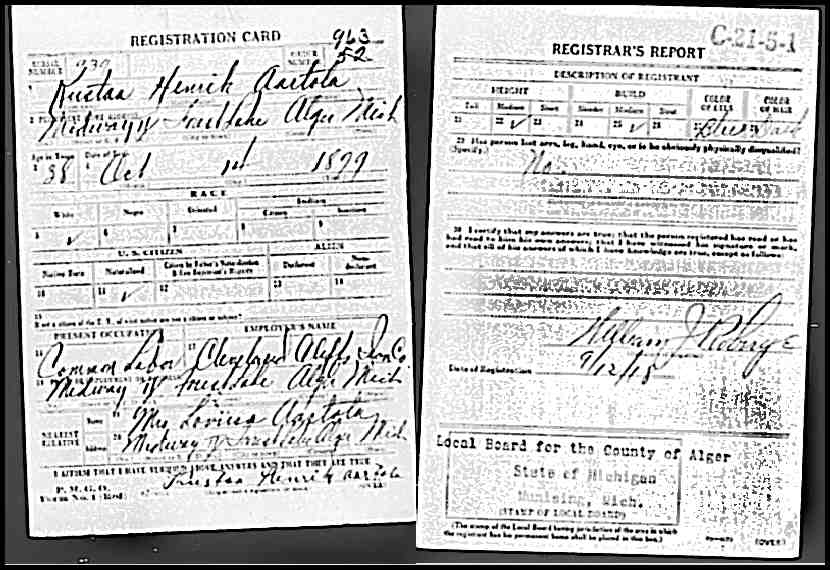 REGISTRATION CARD
963
SERIAL NUMBER 939
ORDER NUMBER 52
Kustaa Henrik Aartola
Midway of Alger Mich
Age in Years
Date of Birth
38 Oct 1st 1879
RACE
White
Negro
Oriental
Indian
Citizen
Noncitizen
5 ✓ 6 7 8 9
U. S. CITIZEN
ALIEN
Native Born
Naturalized
Citizen by Father's Naturalization
Declarant
Non-declarant
10 11 ✓ 12 13 14
15
If not a citizen of the U. S., of what nation are you a citizen or subject?
PRESENT OCCUPATION
EMPLOYER'S NAME
16 Common Labor 17 Cleveland Cliffs Iron Co
Midway of Alger Mich
NEAREST RELATIVE
Name 19 Mrs Aartola
Address 20 Midway of Alger Mich
I AFFIRM THAT I HAVE VERIFIED ABOVE ANSWERS AND THAT THEY ARE TRUE
P. M. G. O.
Form No. 1 (Red)
Kustaa Henrik Aartola
C-21-5-1
REGISTRAR'S REPORT
DESCRIPTION OF REGISTRANT
HEIGHT
BUILD
COLOR OF EYES
COLOR OF HAIR
Tall Medium Short Slender Medium Stout
21 22 ✓ 23 24 25 ✓ 26 27 Blue
29 Has person lost arm, leg, hand, eye, or is he obviously physically disqualified?
(Specify.)
No.
30 I certify that my answers are true; that the person registered has read or has
had read to him his own answers; that I have witnessed his signature or mark,
and that all of his answers of which I have knowledge are true, except as follows:
William J
Date of Registration 9/12/18
Local Board for the County of Alger
State of Michigan
Munising, Mich.
(STAMP OF LOCAL BOARD)
(The stamp of the Local Board having jurisdiction of the area in which
the registrant has his permanent home shall be placed in this box.)
(OVER)